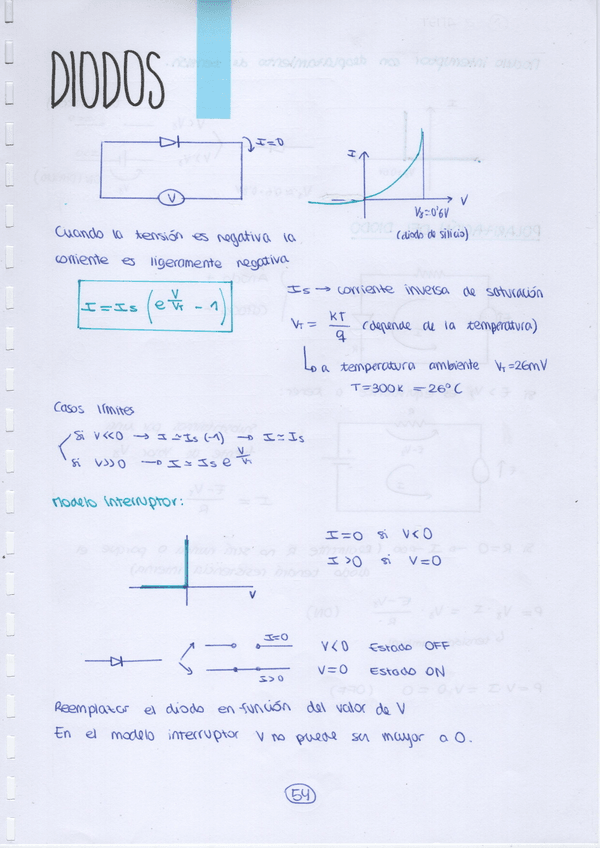 DIODOS
I=0
V
I
V
Vγ=0'6V
(diodo de silicio)
Cuando la tensión es negativa la
corriente es ligeramente negativa
I = Is (e^(V/VT) - 1)
Is → corriente inversa de saturación
VT = KT/q (depende de la temperatura)
↳ a temperatura ambiente VT=26mV
T=300K = 26ºC
Casos límites
Si V<<0 → I ≃ Is (-1) → I ≃ Is
Si V>>0 → I ≃ Is e^(V/VT)
Modelo interruptor:
I=0 si V<0
I>0 si V=0
V
I=0 V<0 Estado OFF
I>0 V=0 Estado ON
Reemplazar el diodo en función del valor de V
En el modelo interruptor V no puede ser mayor a 0.
54